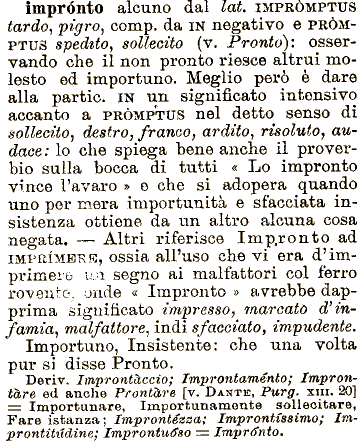 imprónto alcuno dal lat. IMPRÒMPTUS
tardo, pigro, comp. da IN negativo e PRÒM-
PTUS spedito, sollecito (v. Pronto): osser-
vando che il non pronto riesce altrui mo-
lesto ed importuno. Meglio però è dare
alla partic. IN un significato intensivo
accanto a PRÒMPTUS nel detto senso di
sollecito, destro, franco, ardito, risoluto, au-
dace: lo che spiega bene anche il prover-
bio sulla bocca di tutti « Lo impronto
vince l'avaro » e che si adopera quando
uno per mera importunità e sfacciata in-
sistenza ottiene da un altro alcuna cosa
negata. — Altri riferisce Impronto ad
IMPRÍMERE, ossia all'uso che vi era d'im-
primere un segno ai malfattori col ferro
rovente, onde « Impronto » avrebbe dap-
prima significato impresso, marcato d'in-
famia, malfattore, indi sfacciato, impudente.
Importuno, Insistente: che una volta
pur si disse Pronto.
Deriv. Improntàccio; Improntaménto; Impron-
tàre ed anche Prontàre [v. DANTE, Purg. XIII. 20]
= Importunare, Importunamente sollecitare,
Fare istanza; Improntézza; Improntíssimo; Im-
prontitúdine; Improntuóso = Imprónto.